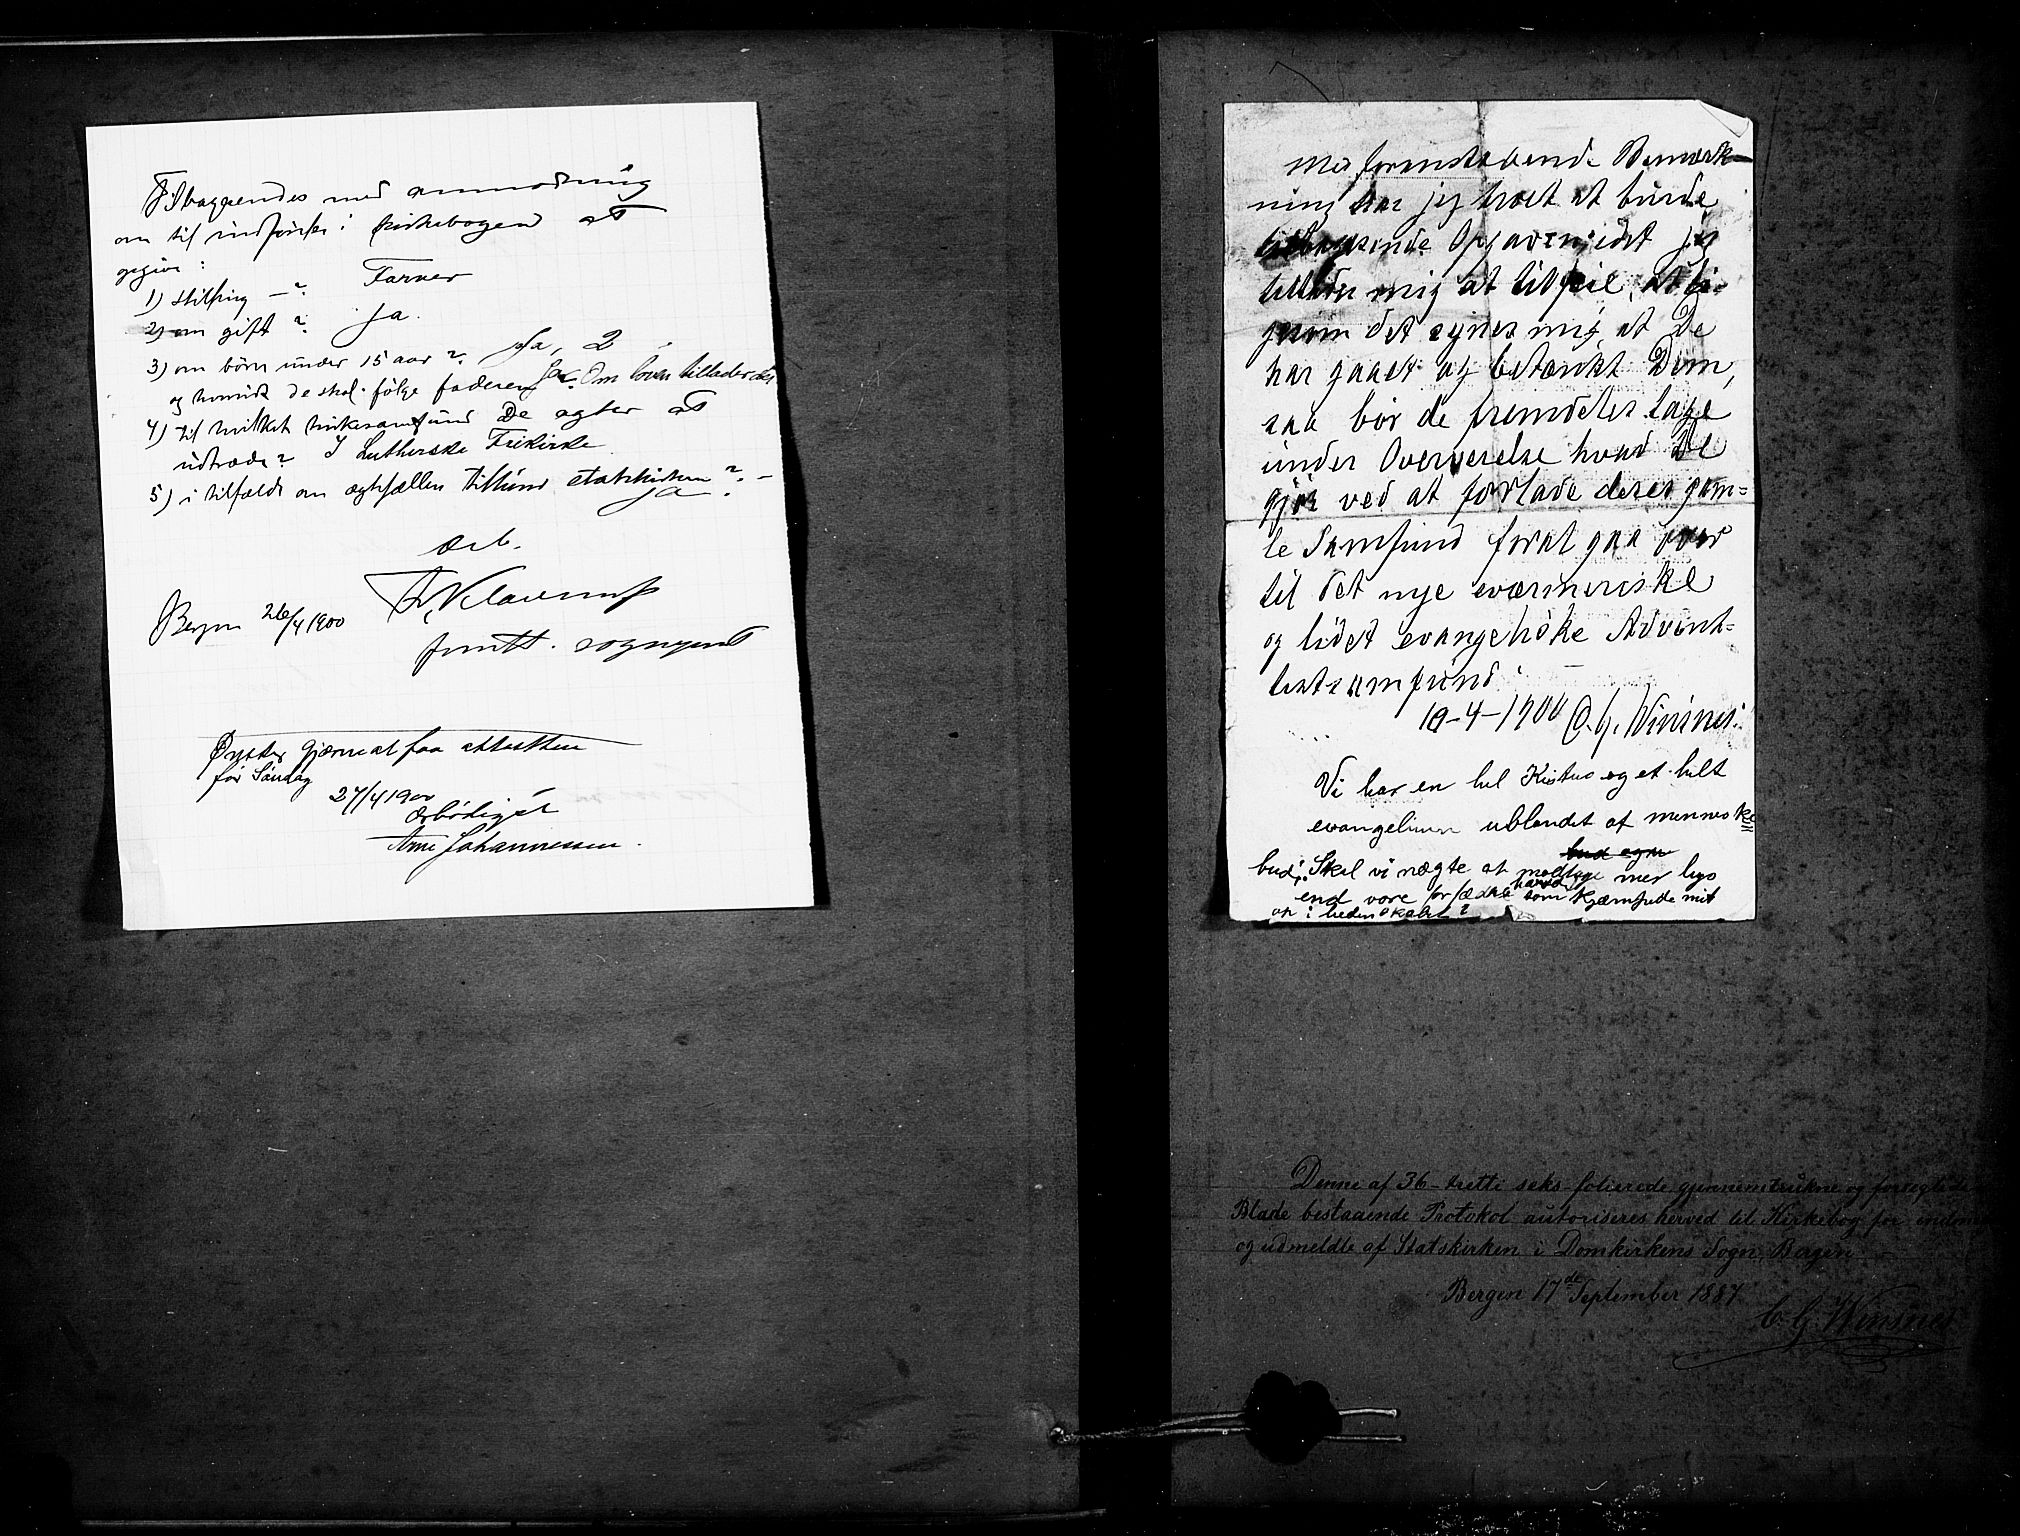 Tilbagesendes med anmodning
om til indførsel i kirkebogen at
opgive:
1) stilling —? Farver
2) om gift? Ja.
3) om börn under 15 aar? Ja, 2
og hvorvidt de skal følge faderen? Ja. Om loven tillader det
4) til hvilket kirkesamfund De agter at
udtræde? I Lutherske Frikirke
5) i tilfælde om ægtefællen tilhører statskirken? —
Ja
Ærb.
Bergen 26/4 1900
forrett. sogneprest
Ønsker gjerne at faa attesten
før Søndag
27/4 1900
Ærbödigst
Arne Johannessen.
Med foranstaaende Bemærk-
ning har jeg troet at burde
tilbagesende Opgaven, idet jeg
tillader mig at tilföie, at li-
gesom det synes mig, at De
har gaaet og betænkt Dem,
saa bör de fremdeles tage
under Overveielse hvad De
gjör ved at forlade deres gam=
le Samfund forat gaa over
til det nye sværmeriske
og lidet evangeliske Advent=
istsamfund.
10-4-1900 C. G. Winsnes.
Vi har en hel Kristus og et helt
evangelium ublandet af menneske
bud. Skal vi nægte at modtage mer lys
end vore forfædre havde som kjæmpede mit
op i hedenskabet?
Denne af 36 - tretti seks folierede gjennemtrukne og forseglede
Blade bestaaende Protokol autoriseres herved til Kirkebog for indm
og udmeldte af Statskirken i Domkirkens Sogn, Bergen
Bergen 17de September 1887
C. G. Winsnes